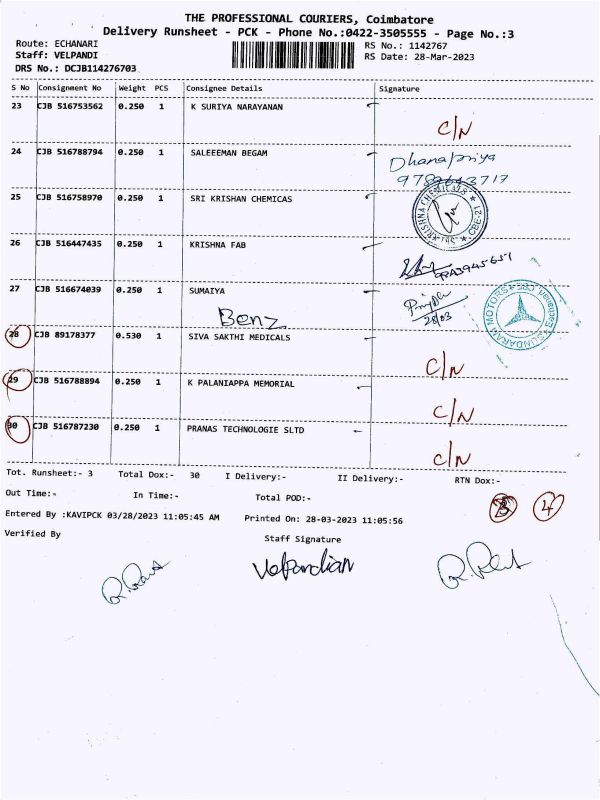 THE PROFESSIONAL COURIERS, Coimbatore
Delivery Runsheet - PCK - Phone No.:0422-3505555 - Page No.:3
Route: ECHANARI RS No.: 1142767
Staff: VELPANDI RS Date: 28-Mar-2023
DRS No.: DCJB114276703
S No Consignment No Weight PCS Consignee Details Signature
23 CJB 516753562 0.250 1 K SURIYA NARAYANAN
C/N
24 CJB 516788794 0.250 1 SALEEEMAN BEGAM
Dhanapriya
25 CJB 516758970 0.250 1 SRI KRISHAN CHEMICAS
26 CJB 516447435 0.250 1 KRISHNA FAB
27 CJB 516674039 0.250 1 SUMAIYA
Priya
28/03
Benz
SUNDARAM MOTORS
28 CJB 89178377 0.530 1 SIVA SAKTHI MEDICALS
C/N
29 CJB 516788894 0.250 1 K PALANIAPPA MEMORIAL
C/N
30 CJB 516787230 0.250 1 PRANAS TECHNOLOGIE SLTD
C/N
Tot. Runsheet:- 3 Total Dox:- 30 I Delivery:- II Delivery:- RTN Dox:-
Out Time:- In Time:- Total POD:-
4
Entered By :KAVIPCK 03/28/2023 11:05:45 AM Printed On: 28-03-2023 11:05:56
Verified By Staff Signature
Velpandian